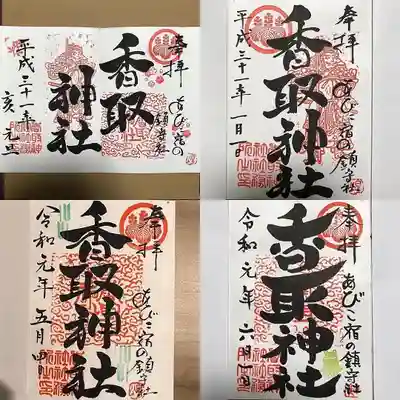 奉拝
あびこ宿の鎮守社
香取
神社
平成三十一年
亥 元旦
奉拝
あびこ宿の鎮守社
香取神社
平成三十一年一月一日
奉拝
あびこ宿の鎮守社
香取神社
令和元年五月
奉拝
あびこ宿の鎮守社
香取神社
令和元年六月一日